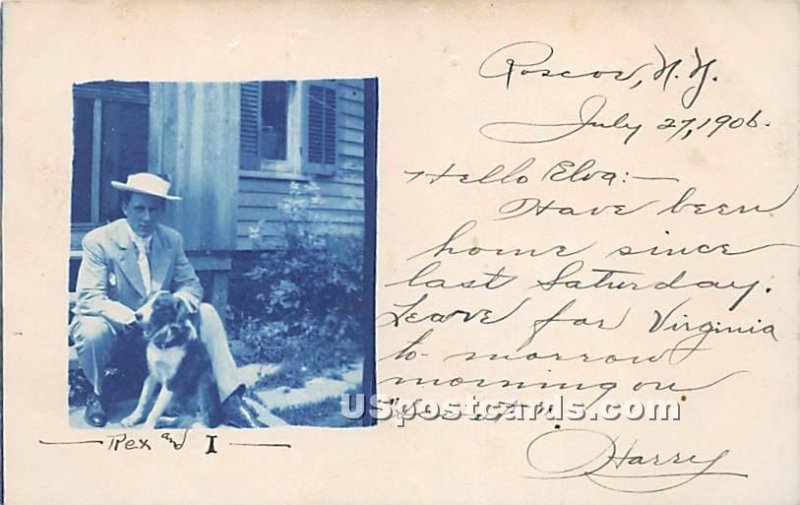 Roscoe, N.Y.
July 27, 1906.
Hello Elva:—
Have been
home since
last Saturday.
Leave for Virginia
to-morrow
morning on
USpostcards.com
Harry
Rex and I